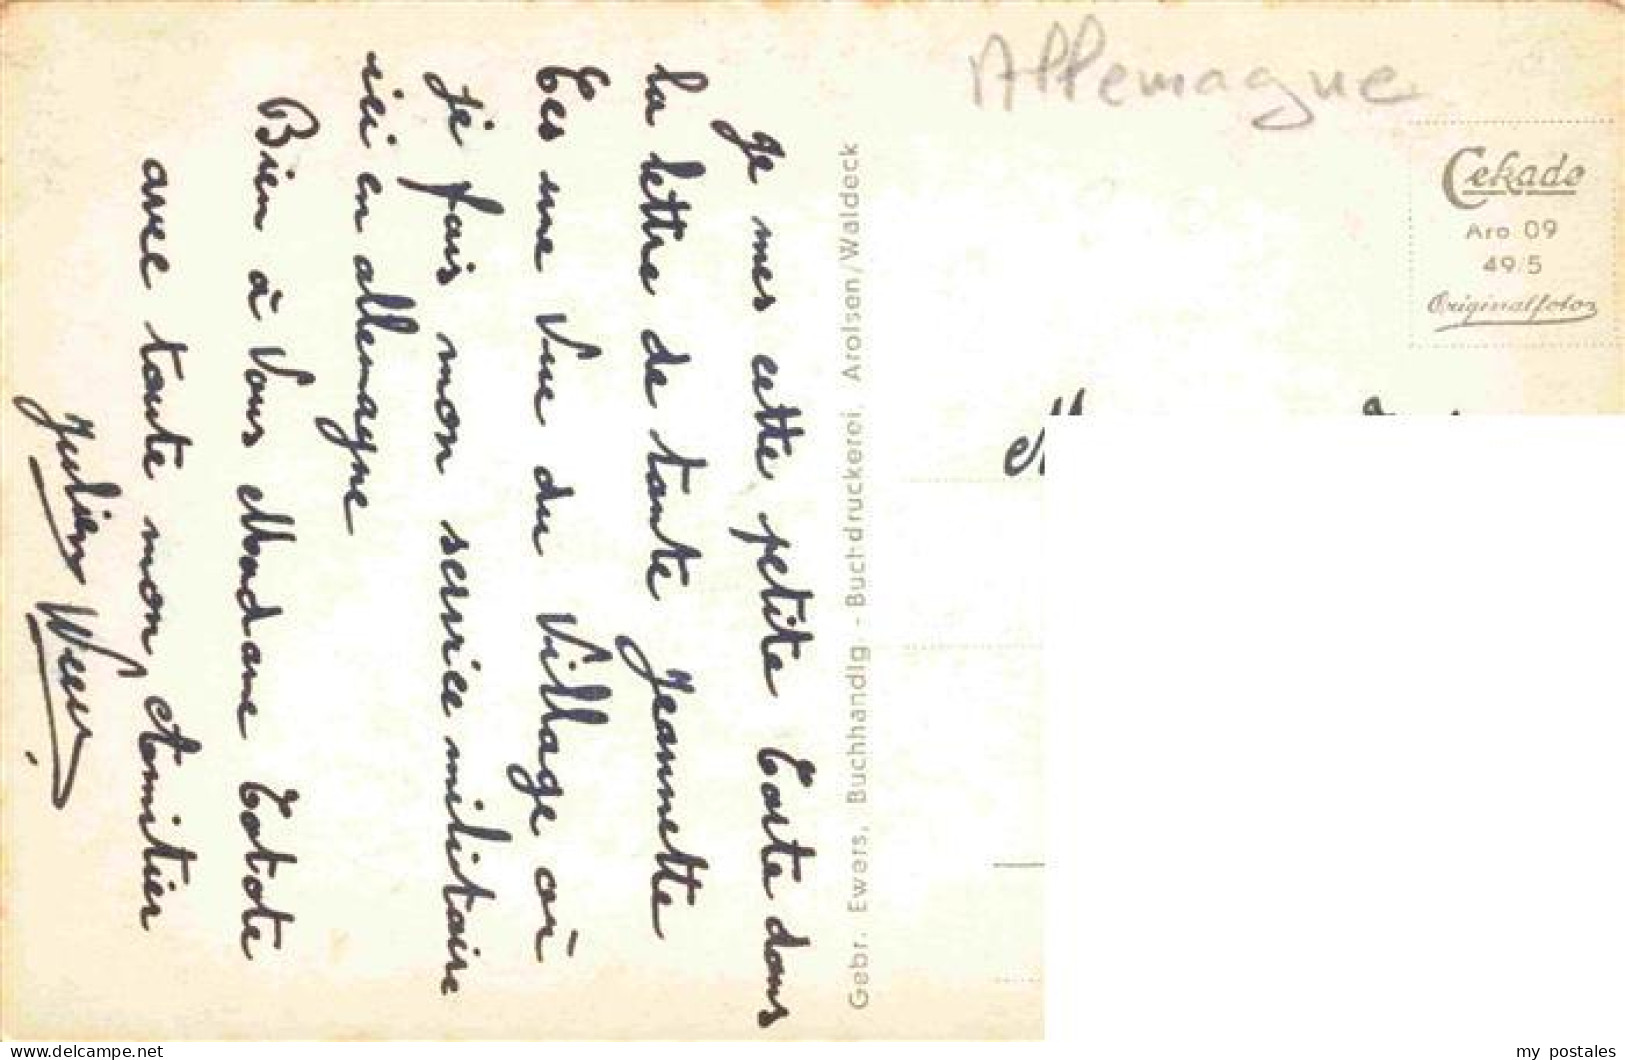 Allemagne
Cekade
Aro 09
49/5
Originalfoto
Je mes cette petite Carte dans
la lettre de tante Jeannette
C'es une Vue du Village où
je fais mon service militaire
ici en allemagne
Bien à Vous Madame Totote
avec toute mon Amitier
Julien
Gebr. Ewers, Buchhandlg. - Buchdruckerei, Arolsen/Waldeck
my postales